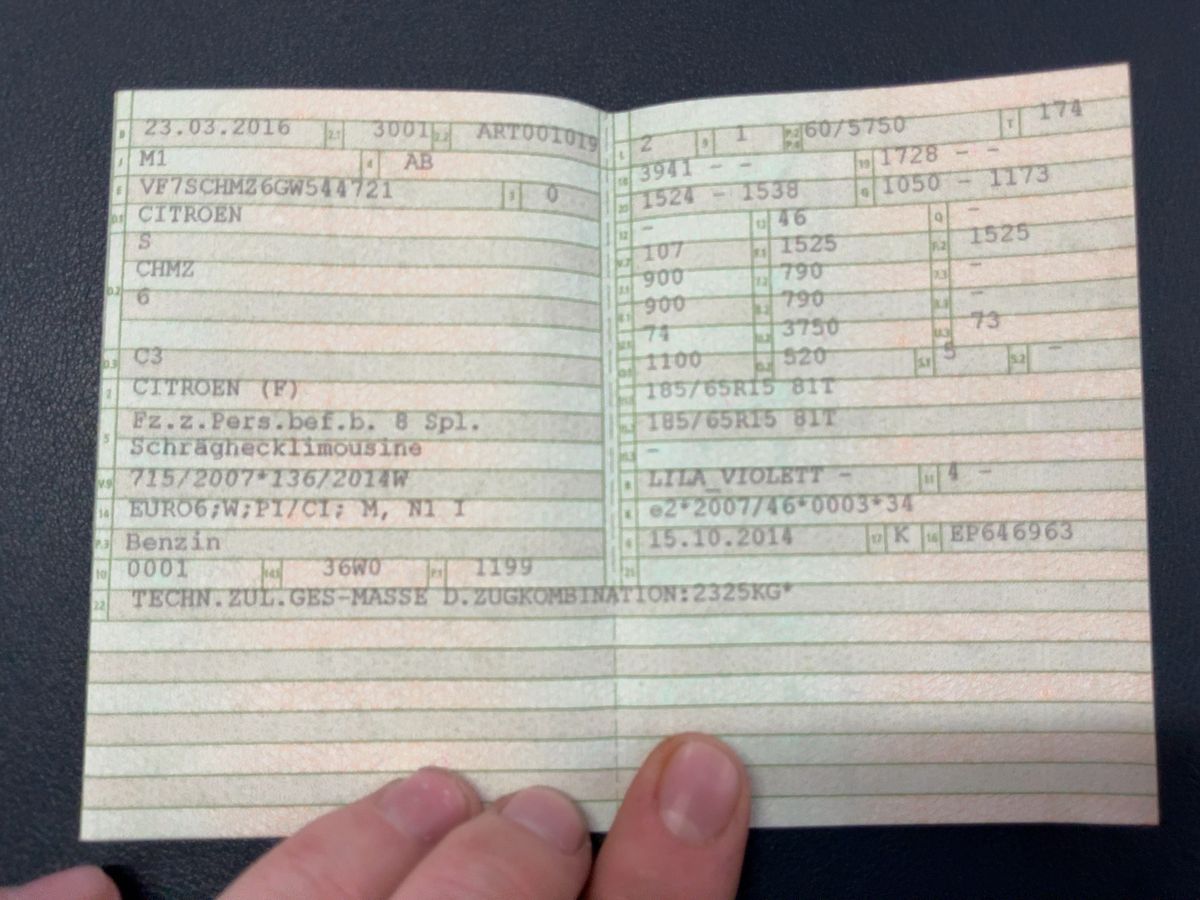 B 23.03.2016 2.1 3001 2.2 ART001019
J M1 4 AB
E VF7SCHMZ6GW544721 3 0
D.1 CITROEN
S
CHMZ
D.2 6
D.3 C3
2 CITROEN (F)
Fz.z.Pers.bef.b. 8 Spl.
5 Schräghecklimousine
V.9 715/2007*136/2014W
14 EURO6;W;PI/CI; M, N1 I
P.3 Benzin
10 0001 14.1 36W0 P.1 1199
22 TECHN.ZUL.GES-MASSE D.ZUGKOMBINATION:2325KG*
L 2 9 1 P.2 P.4 60/5750 T 174
18 3941 - - 19 1728 - -
20 1524 - 1538 G 1050 - 1173
12 - 13 46 Q -
V.7 107 F.1 1525 F.2 1525
7.1 900 7.2 790 7.3 -
8.1 900 8.2 790 8.3 -
U.1 74 U.2 3750 U.3 73
O.1 1100 O.2 520 S.1 5 S.2 -
15.1 185/65R15 81T
15.2 185/65R15 81T
15.3 -
R LILA_VIOLETT - 11 4 -
K e2*2007/46*0003*34
6 15.10.2014 17 K 16 EP646963
21